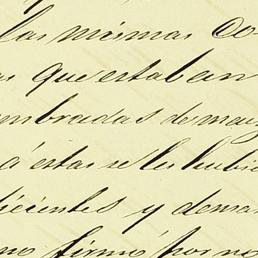 las mismas Co-
as que estaban
mbradas de may
á estas se les hubie
ficientes y demas
no firmó por no